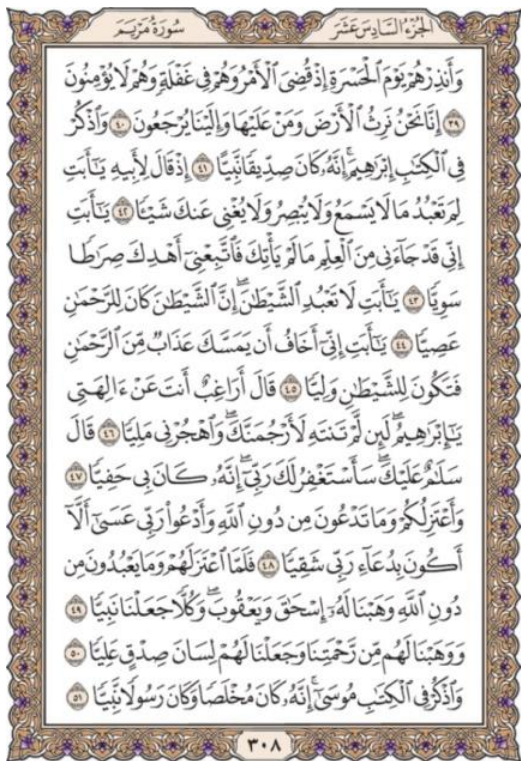 الجُزْءُ السَّادِسَ عَشَرَ سُورَةُ مَرْيَمَ
وَأَنذِرْهُمْ يَوْمَ ٱلْحَسْرَةِ إِذْ قُضِىَ ٱلْأَمْرُ وَهُمْ فِى غَفْلَةٍ وَهُمْ لَا يُؤْمِنُونَ
٣٩ إِنَّا نَحْنُ نَرِثُ ٱلْأَرْضَ وَمَنْ عَلَيْهَا وَإِلَيْنَا يُرْجَعُونَ ٤٠ وَٱذْكُرْ
فِى ٱلْكِتَٰبِ إِبْرَٰهِيمَ ۚ إِنَّهُۥ كَانَ صِدِّيقًا نَّبِيًّا ٤١ إِذْ قَالَ لِأَبِيهِ يَٰٓأَبَتِ
لِمَ تَعْبُدُ مَا لَا يَسْمَعُ وَلَا يُبْصِرُ وَلَا يُغْنِى عَنكَ شَيْـًٔا ٤٢ يَٰٓأَبَتِ
إِنِّى قَدْ جَآءَنِى مِنَ ٱلْعِلْمِ مَا لَمْ يَأْتِكَ فَٱتَّبِعْنِىٓ أَهْدِكَ صِرَٰطًا
سَوِيًّا ٤٣ يَٰٓأَبَتِ لَا تَعْبُدِ ٱلشَّيْطَٰنَ ۖ إِنَّ ٱلشَّيْطَٰنَ كَانَ لِلرَّحْمَٰنِ
عَصِيًّا ٤٤ يَٰٓأَبَتِ إِنِّىٓ أَخَافُ أَن يَمَسَّكَ عَذَابٌ مِّنَ ٱلرَّحْمَٰنِ
فَتَكُونَ لِلشَّيْطَٰنِ وَلِيًّا ٤٥ قَالَ أَرَاغِبٌ أَنتَ عَنْ ءَالِهَتِى
يَٰٓإِبْرَٰهِيمُ ۖ لَئِن لَّمْ تَنتَهِ لَأَرْجُمَنَّكَ ۖ وَٱهْجُرْنِى مَلِيًّا ٤٦ قَالَ
سَلَٰمٌ عَلَيْكَ ۖ سَأَسْتَغْفِرُ لَكَ رَبِّىٓ ۖ إِنَّهُۥ كَانَ بِى حَفِيًّا ٤٧
وَأَعْتَزِلُكُمْ وَمَا تَدْعُونَ مِن دُونِ ٱللَّهِ وَأَدْعُوا۟ رَبِّى عَسَىٰٓ أَلَّآ
أَكُونَ بِدُعَآءِ رَبِّى شَقِيًّا ٤٨ فَلَمَّا ٱعْتَزَلَهُمْ وَمَا يَعْبُدُونَ مِن
دُونِ ٱللَّهِ وَهَبْنَا لَهُۥٓ إِسْحَٰقَ وَيَعْقُوبَ ۖ وَكُلًّا جَعَلْنَا نَبِيًّا ٤٩
وَوَهَبْنَا لَهُم مِّن رَّحْمَتِنَا وَجَعَلْنَا لَهُمْ لِسَانَ صِدْقٍ عَلِيًّا ٥٠
وَٱذْكُرْ فِى ٱلْكِتَٰبِ مُوسَىٰٓ ۚ إِنَّهُۥ كَانَ مُخْلَصًا وَكَانَ رَسُولًا نَّبِيًّا ٥١
٣٠٨